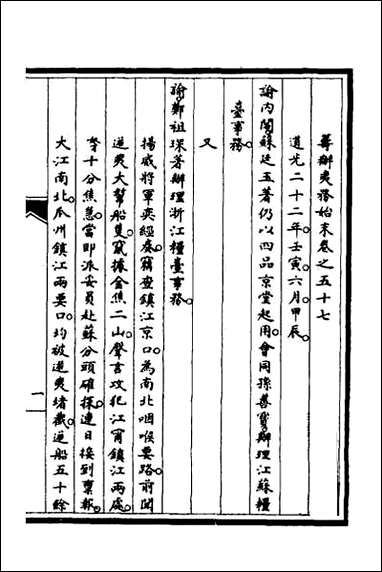 籌辦夷務始末卷之五十七
道光二十二年壬寅六月甲辰
諭內閣蘇廷玉著仍以四品京堂起用會同孫善寶辦理江蘇糧
臺事務
又
諭鄭祖琛著辦理浙江糧臺事務
揚威將軍奕經奏竊查鎮江京口為南北咽喉要路前聞
逆夷大幫船隻竄據金焦二山聲言攻犯江甯鎮江兩處
等十分焦急當即派妥員赴蘇分頭確探連日接到稟報
大江南北瓜州鎮江兩要口均被逆夷堵截逆船五十餘
一